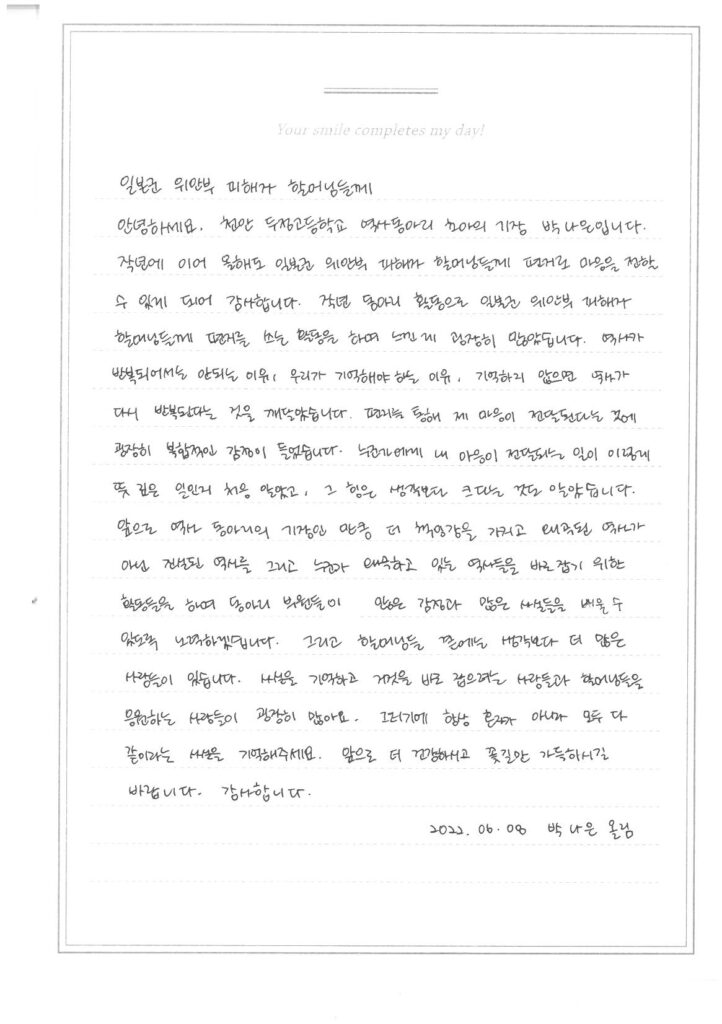 Your smile completes my day!
일본군 위안부 피해자 할머님들께
안녕하세요. 천안 두정고등학교 역사동아리 초아의 기장 박나은입니다.
작년에 이어 올해도 일본군 위안부 피해자 할머님들께 편지로 마음을 전할
수 있게 되어 감사합니다. 작년 동아리 활동으로 일본군 위안부 피해자
할머님들께 편지를 쓰는 활동을 하며 느낀게 굉장히 많았습니다. 역사가
반복되어서는 안되는 이유, 우리가 기억해야 하는 이유, 기억하지 않으면 역사가
다시 반복된다는 것을 깨달았습니다. 편지를 통해 제 마음이 전달된다는 것에
굉장히 복합적인 감정이 들었습니다. 누군가에게 내 마음이 전달되는 일이 이렇게
뜻 깊은 일인지 처음 알았고, 그 힘은 생각보다 크다는 것도 알았습니다.
앞으로 역사 동아리의 기장인 만큼 더 책임감을 가지고 왜곡된 역사가
아닌 진실된 역사를 그리고 누군가 왜곡하고 있는 역사들을 바로잡기 위한
활동들을 하며 동아리 부원들이 많은 감정과 많은 사실들을 배울 수
있도록 노력하겠습니다. 그리고 할머님들 곁에는 생각보다 더 많은
사람들이 있습니다. 사실을 기억하고 거짓을 바로 잡으려는 사람들과 할머님들을
응원하는 사람들이 굉장히 많아요. 그러기에 항상 혼자가 아니라 모두 다
같이라는 사실을 기억해주세요. 앞으로 더 건강하시고 꽃길만 가득하시길
바랍니다. 감사합니다.
2022.06.08 박나은 올림